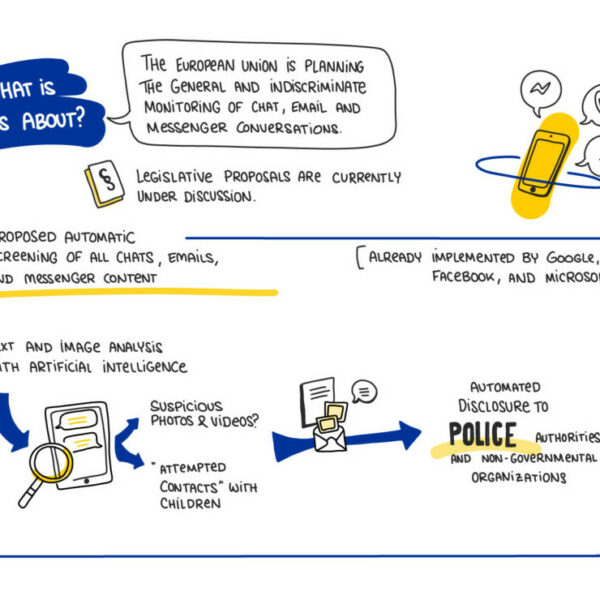 HAT IS
S ABOUT?
THE EUROPEAN UNION IS PLANNING
THE GENERAL AND INDISCRIMINATE
MONITORING OF CHAT, EMAIL AND
MESSENGER CONVERSATIONS.
§
LEGISLATIVE PROPOSALS ARE CURRENTLY
UNDER DISCUSSION.
ROPOSED AUTOMATIC
CREENING OF ALL CHATS, EMAILS,
ND MESSENGER CONTENT
[ALREADY IMPLEMENTED BY GOOGLE,
FACEBOOK, AND MICROSO
XT AND IMAGE ANALYSIS
ITH ARTIFICIAL INTELLIGENCE
SUSPICIOUS
PHOTOS & VIDEOS?
"ATTEMPTED
CONTACTS" WITH
CHILDREN
AUTOMATED
DISCLOSURE TO
POLICE AUTHORITIES
AND NON-GOVERNMENTAL
ORGANIZATIONS